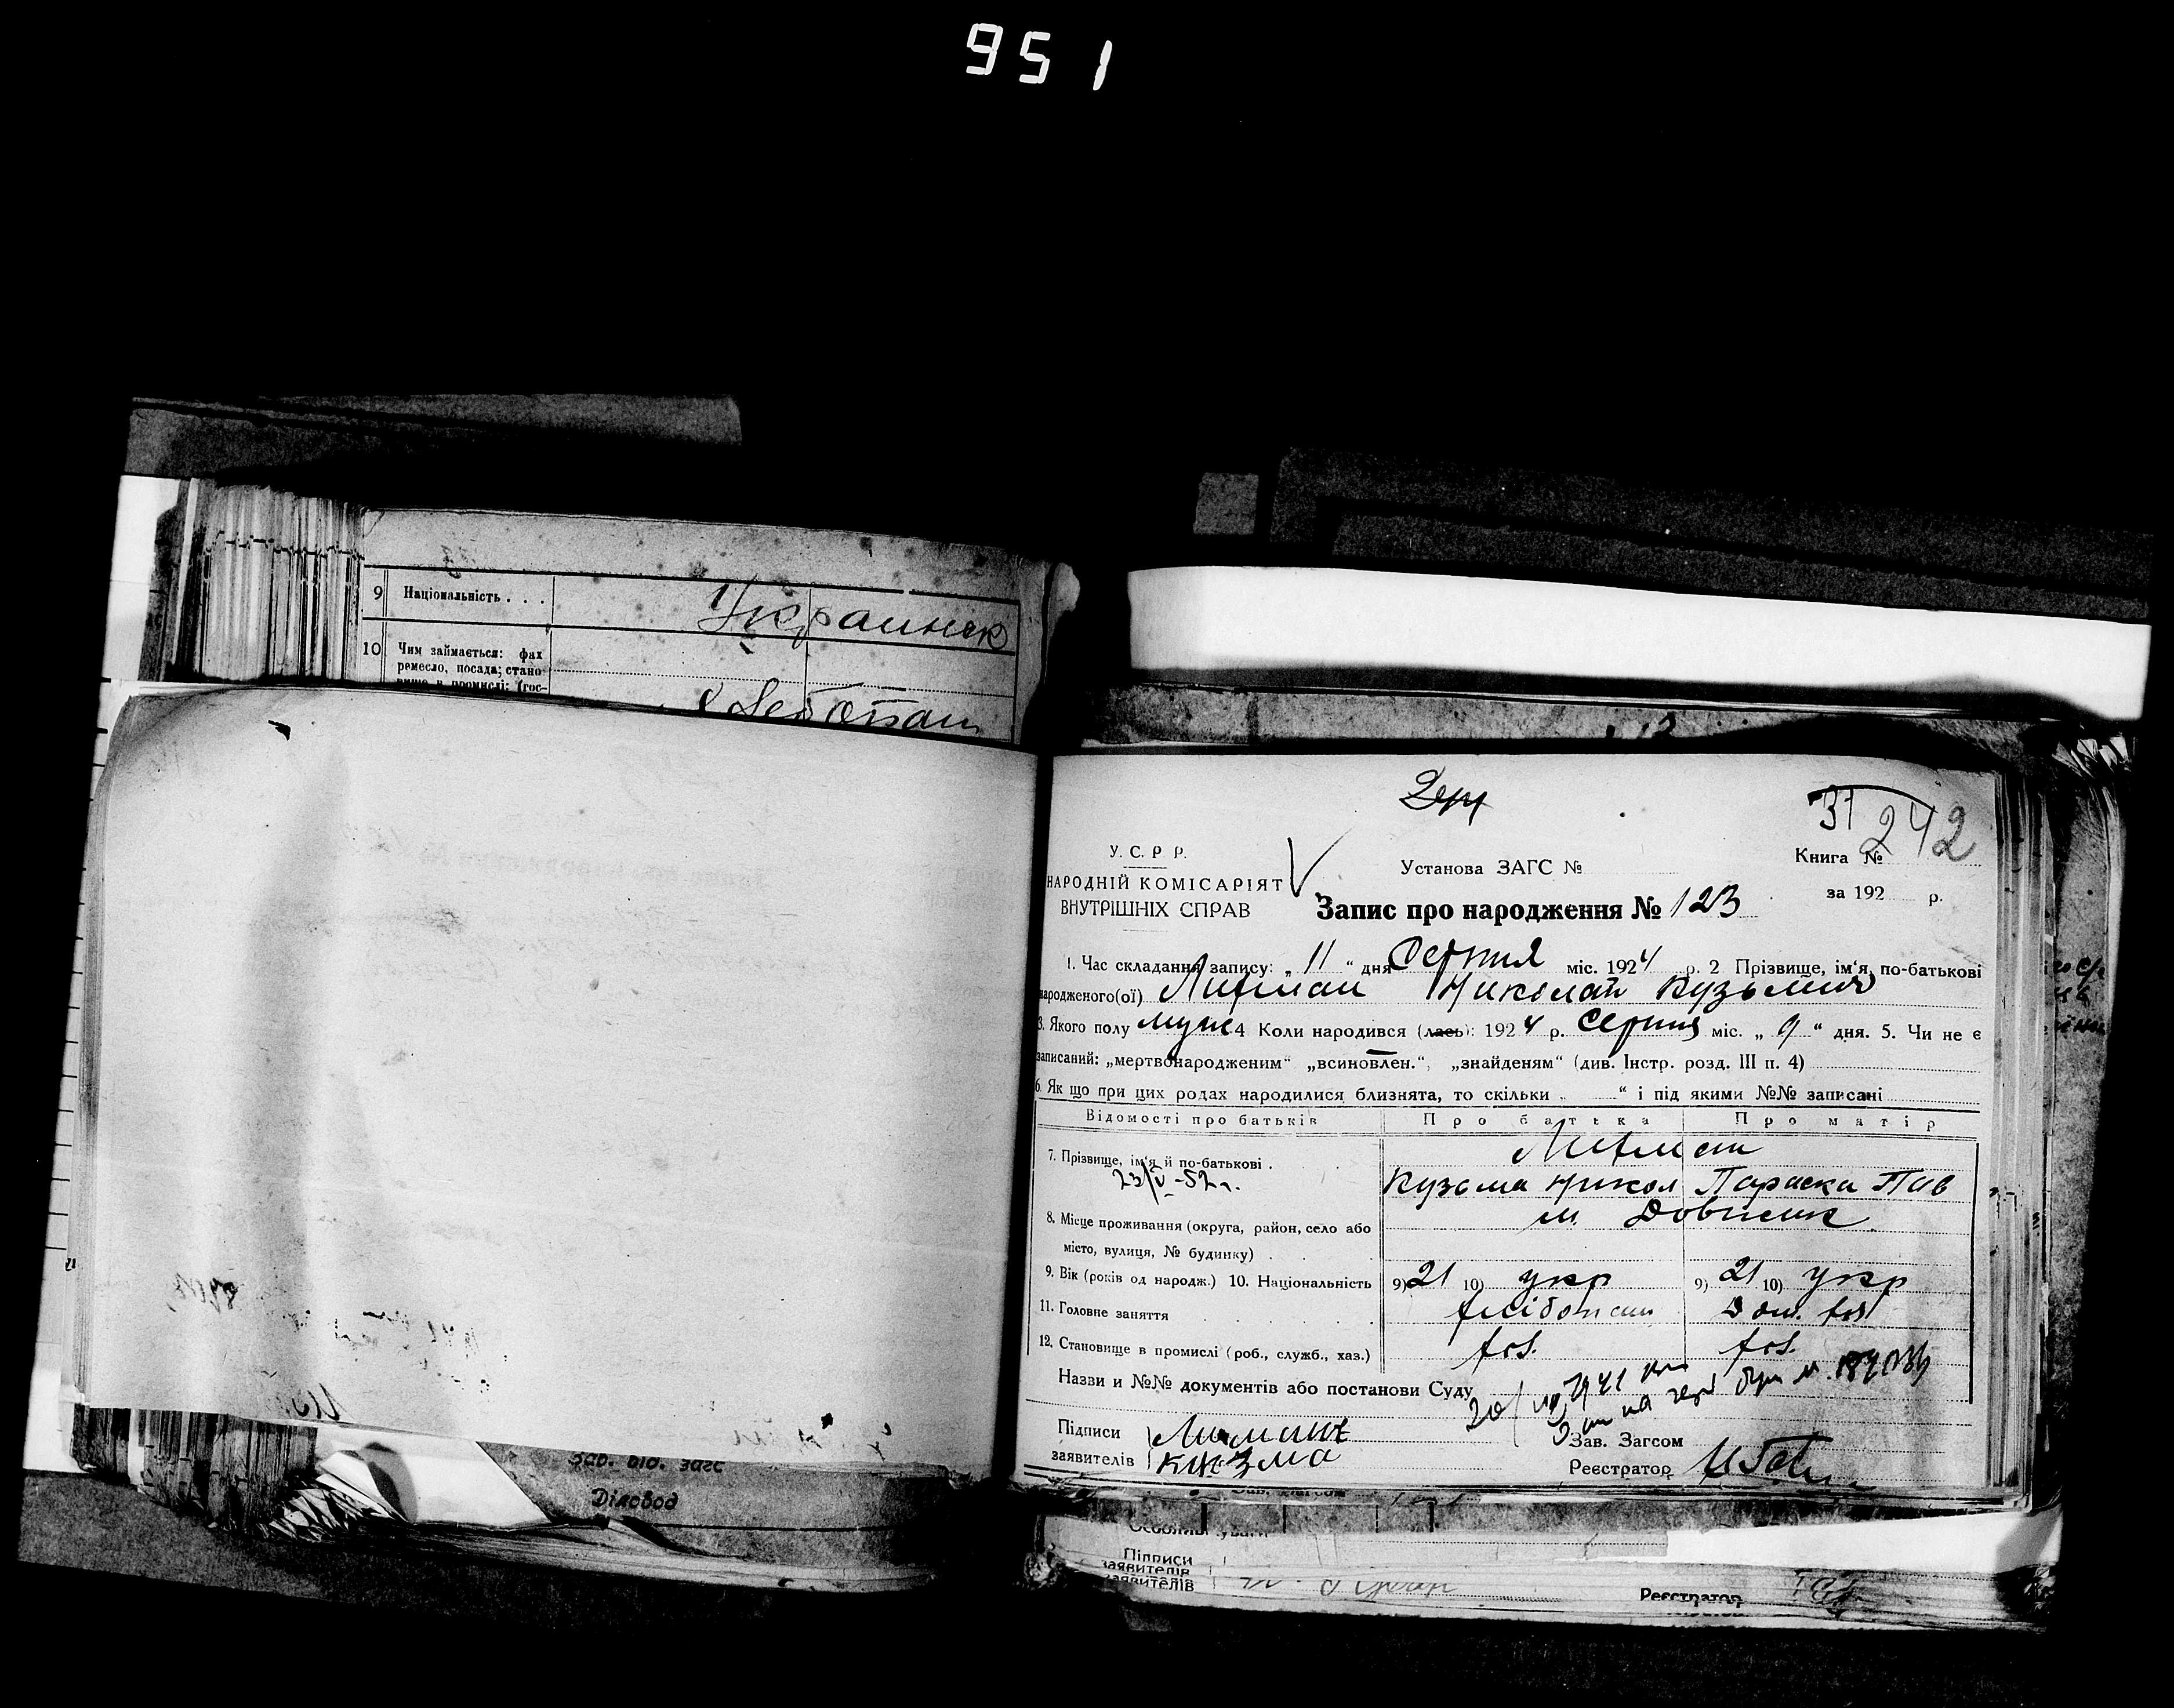 951
9 Національність . . .
Украинск
10 Чим займається: фах
ремесло, посада; стано-
вище в промислі: (гос-
Хлебопаш
Зав. від. загс
Діловод
31
242
У. С. Р. Р.
НАРОДНІЙ КОМІСАРІЯТ
ВНУТРІШНІХ СПРАВ
Установа ЗАГС №
Книга №
за 192 р.
Запис про народження № 123
1. Час складання запису: „ 11 “ дня Серпня міс. 1924 р. 2 Прізвище, ім'я, по-батькові
народженого(ої) Литман Николай Кузьмич
3. Якого полу муж 4 Коли народився (лась): 1924 р. Серпня міс. „ 9 “ дня. 5. Чи не є
записаний: „мертвонародженим“ „всиновлен.“, „знайденям“ (див. Інстр. розд. III п. 4)
6. Як що при цих родах народилися близнята, то скільки „ “ і під якими №№ записані
Відомості про батьків Про батька Про матір
Литман
7. Прізвище, ім'я й по-батькові .
23/V-52 г.
Кузьма Никол Параска Пав
8. Місце проживання (округа, район, село або
місто, вулиця, № будинку) .
м. Довпиик
9. Вік (років од народж.) 10. Національність 9) 21 10) укр 9) 21 10) укр
11. Головне заняття хлібопаш Дом. хоз
12. Становище в промислі (роб., служб., хаз.) хоз. хоз.
Назви и №№ документів або постанови Суду
Підписи
заявителів
Литман
Кузма
Зав. Загсом
Реєстратор
Підписи
заявителів
заявителів
Реєстратор